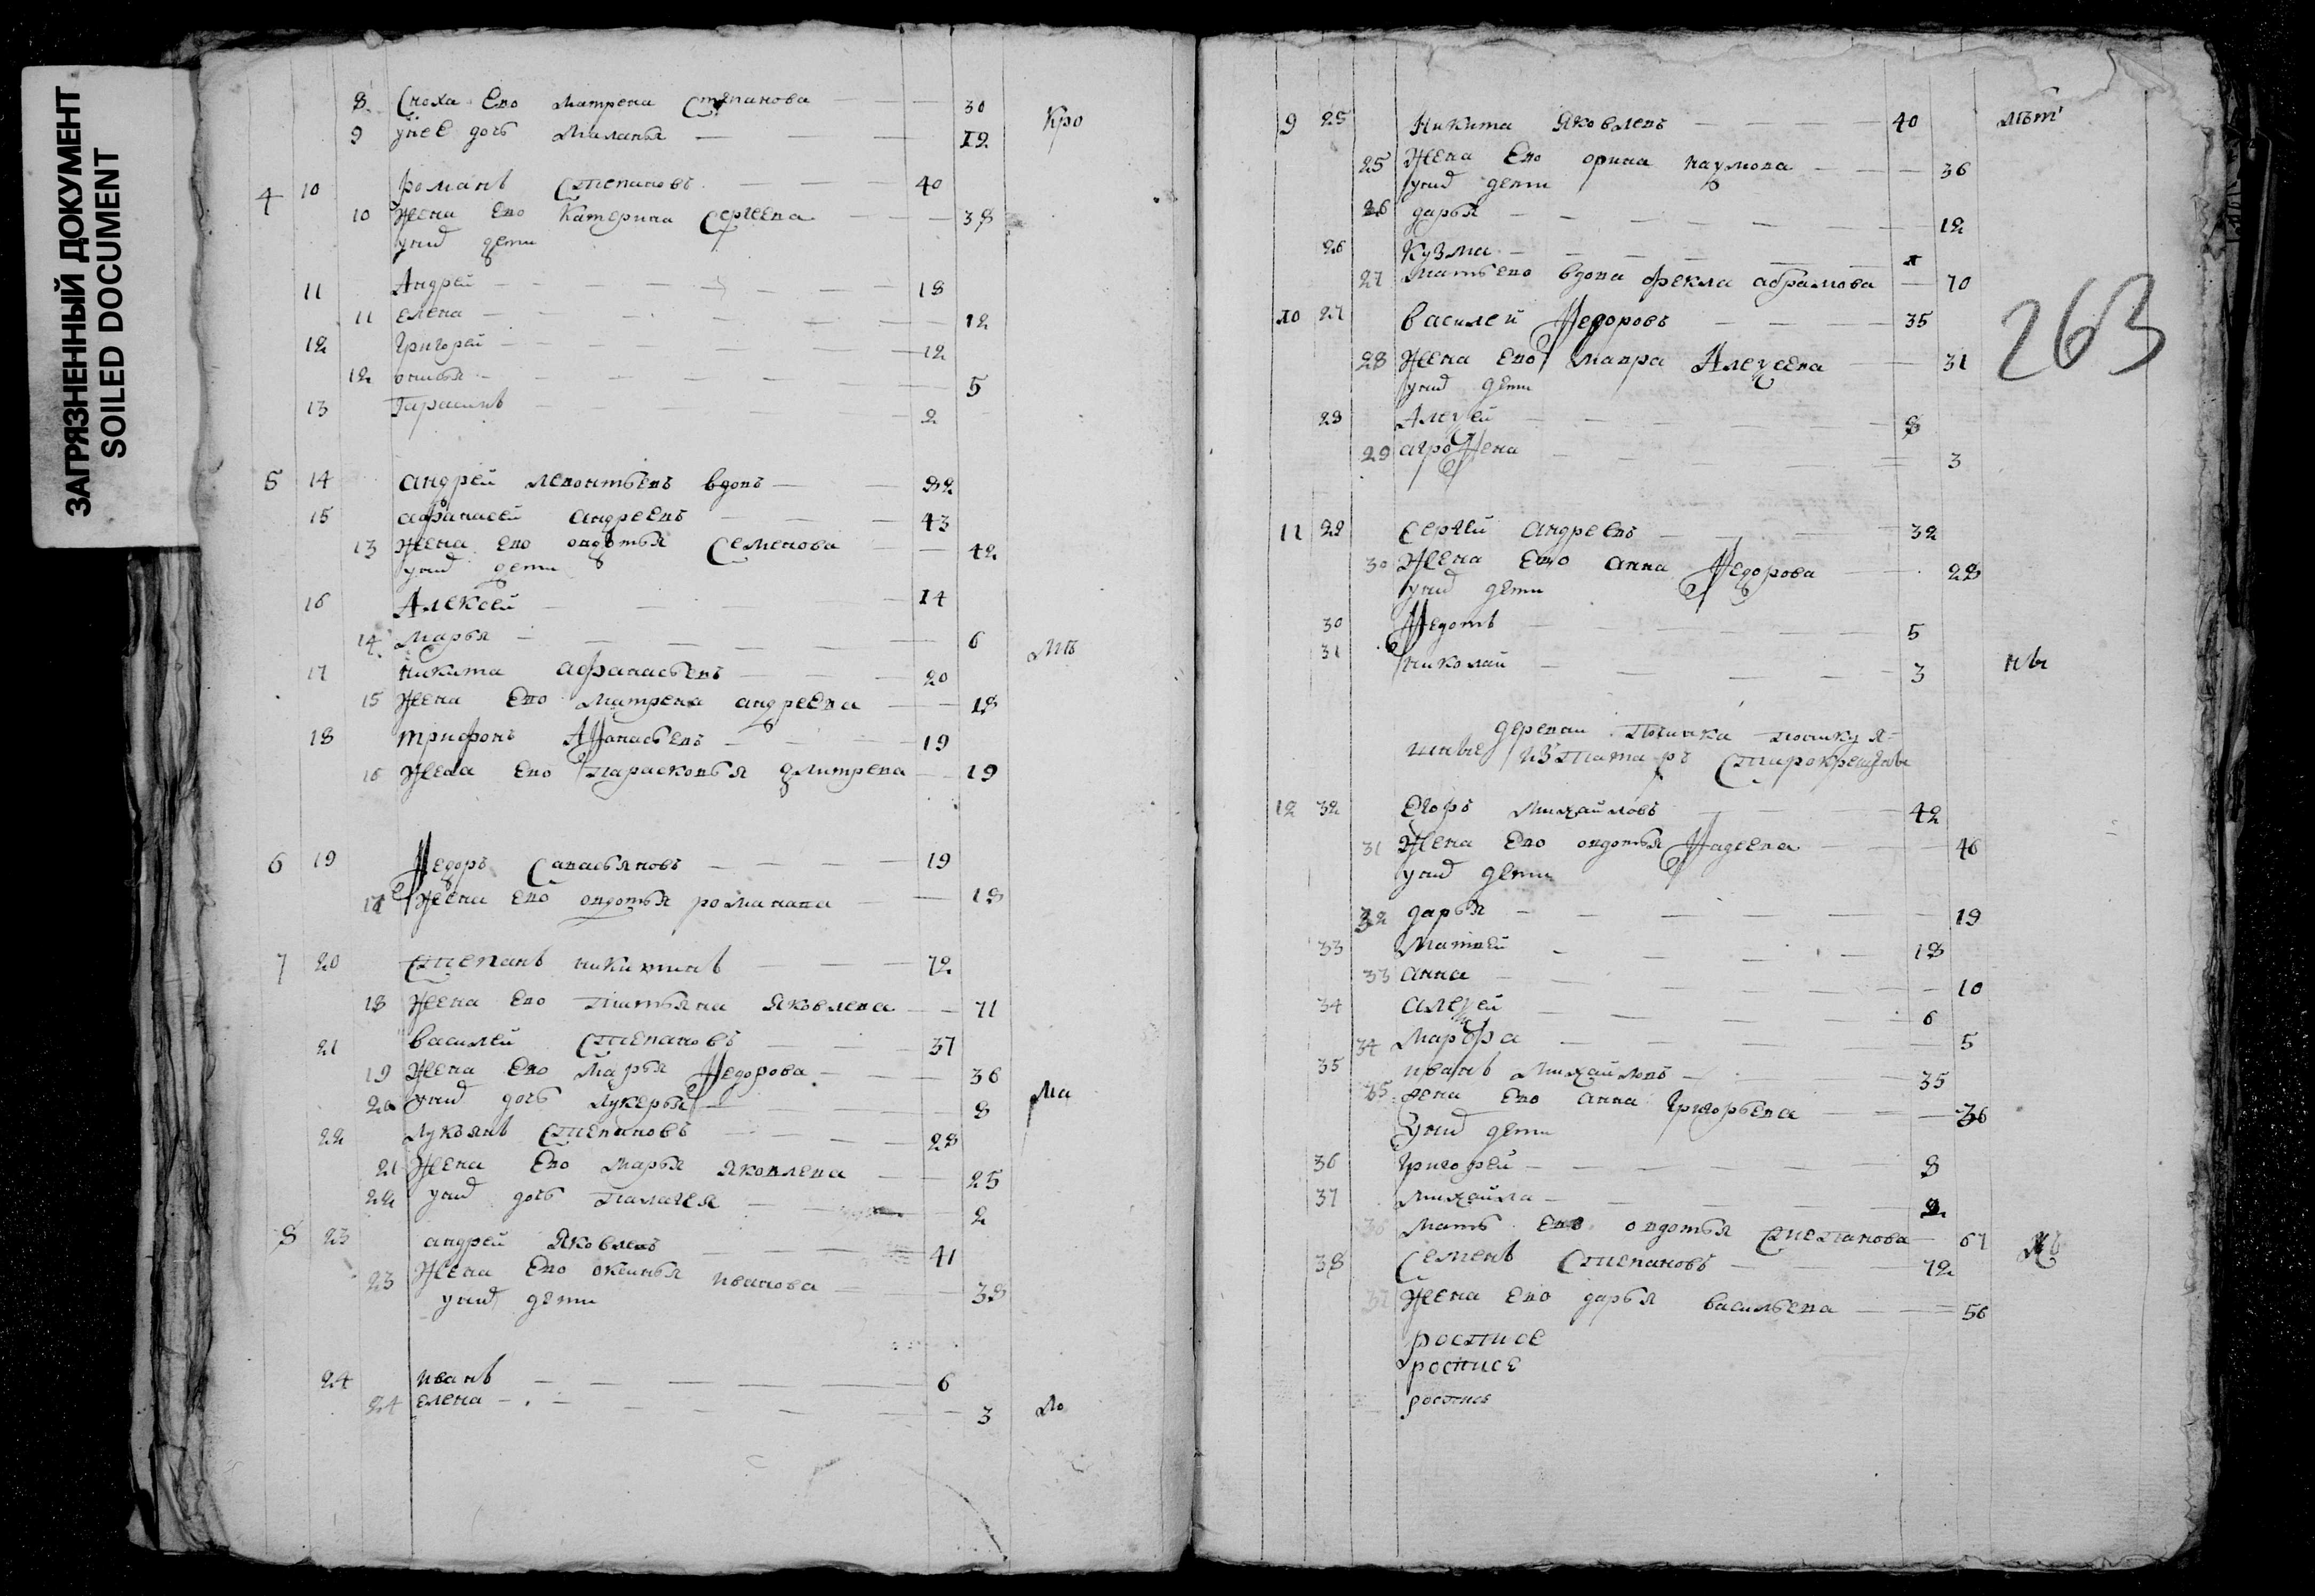 ЗАГРЯЗНЕННЫЙ ДОКУМЕНТ
SOILED DOCUMENT
8 Сноха Ево Матрена Степанова 30 Кро
9 унее дочь Миланья 12
4 10 романъ Степановъ 40
10 Жена Ево Катерина Сергеева 38
унихъ дети
11 Андрей 18
11 елена 12
12 Григорей 12
12 5
13 Гарасимъ 2
5 14 андрей левонтьевъ вдовъ 82
15 афанасей андреевъ 43
13 Жена ево овдотья Семенова 42
унихъ дети
16 Алексей 14
14 Марья 6
17 никита афанасьевъ 20
15 Жена Ево Матрена андреева 18
18 трифонъ Афонасьевъ 19
16 Жена Ево парасковья дмитрева 19
6 19 Федоръ Савасьяновъ 19
17 Жена Ево овдотья романава 18
7 20 Степанъ никитинъ 72
18 Жена Ево татьяна Яковлева 71
21 василей Степановъ 37
19 Жена Ево Марья Федорова 36
20 унихъ дочь лукерья 8 Ма
22 Лукьянъ Степановъ 28
21 Жена Ево Марья Яковлева 25
22 унихъ дочь палагея 2
8 23 андрей Яковлевъ 41
23 Жена Ево оксинья иванова 38
унихъ дети
24 иванъ 6
24 елена 3 Ло
9 25 Никита Яковлевъ 40
25 Жена Ево орина наумова 36
унихъ дети
26 дарья 12
26 Кузма
27 мать ево вдова фекла абрамова 70
263
10 27 василей Федоровъ 35
28 Жена Ево мавра Алексеева 31
унихъ дети
28 Алексей 8
29 аграфена 3
11 29 Сергей андреевъ 32
30 Жена Ево анна Федорова 28
унихъ дети
30 Федотъ 5
31 николай 3 ны
деревни
Старокрещены
12 32 Егоръ михайловъ 42
31 Жена Ево овдотья Фадеева 46
унихъ дети
32 дарья 19
33 Матвей 18
33 анна 10
34 алексей 6
34 марфа 5
35 иванъ михайловъ 35
35 жена Ево анна Григорьева 36
унихъ дети
36 Григорей 8
37 михайла 2
36 мать Ево овдотья Степанова 67
38 Семенъ Степановъ 72
37 Жена Ево дарья васильева 56
росписе
росписе
росписе